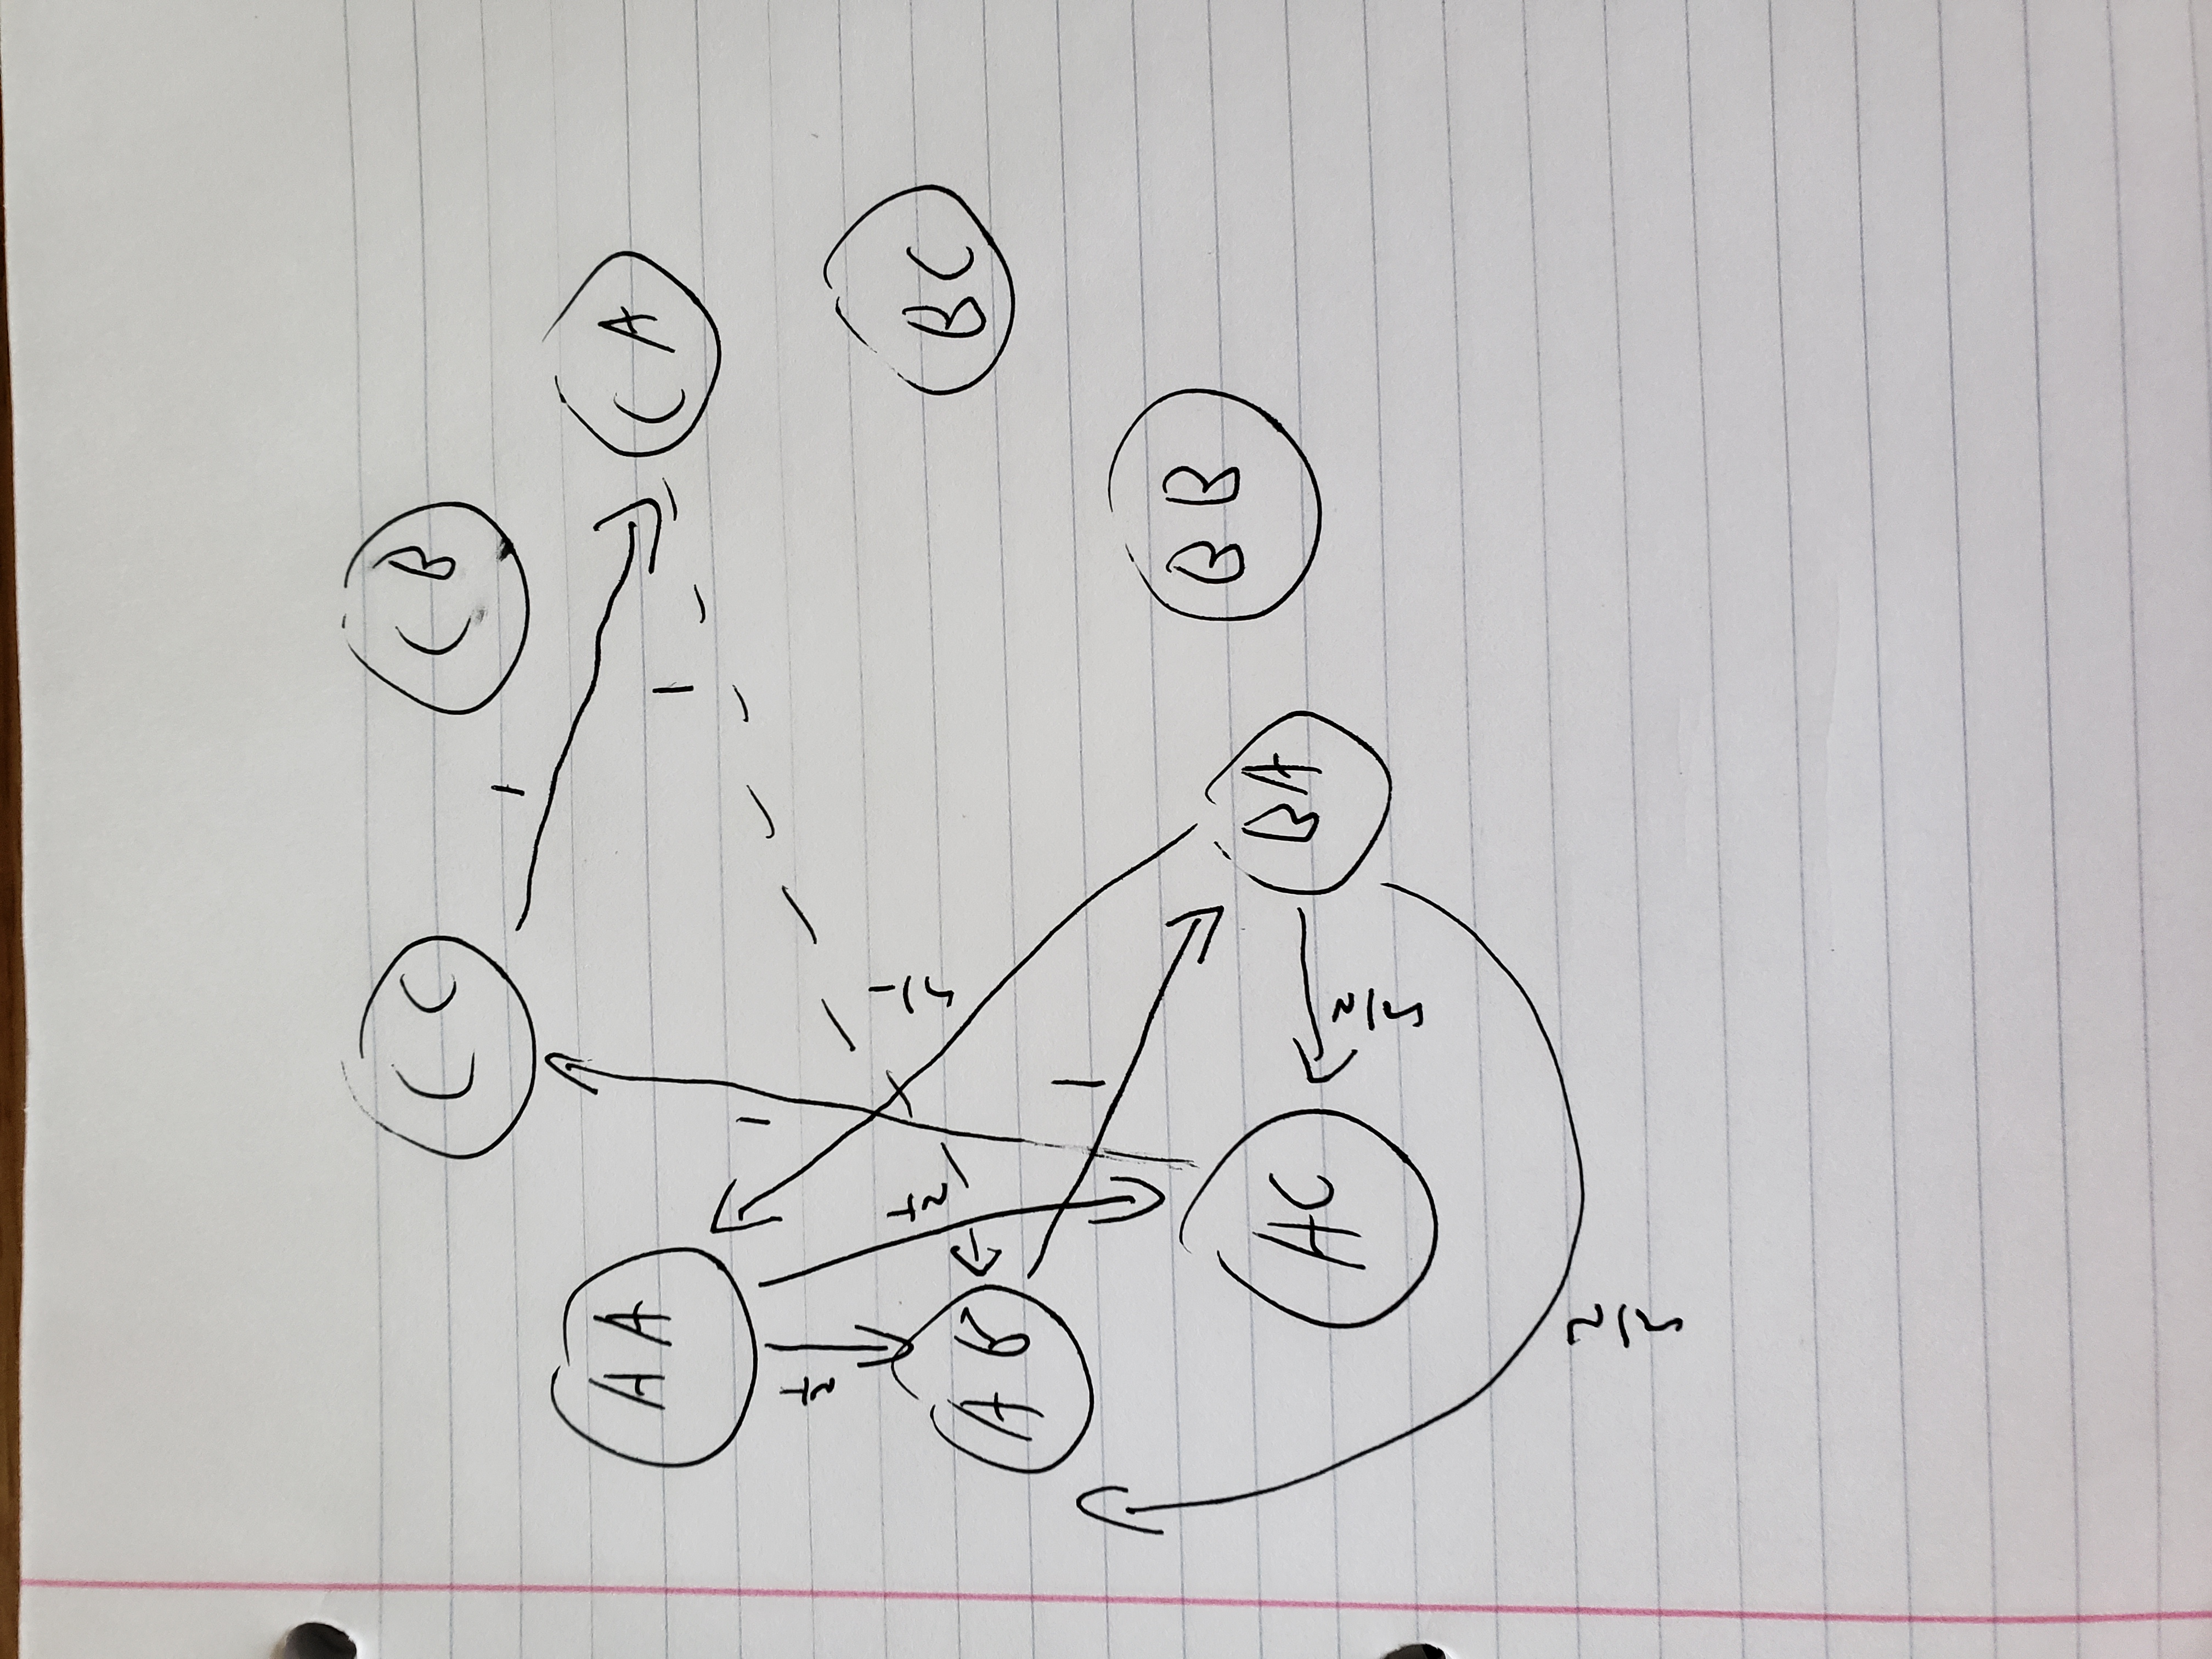 CC
CB
1
AA
CA
1
1
1/2
1/2
1/5
BC
AB
1
BB
AC
BA
2/5
2/5